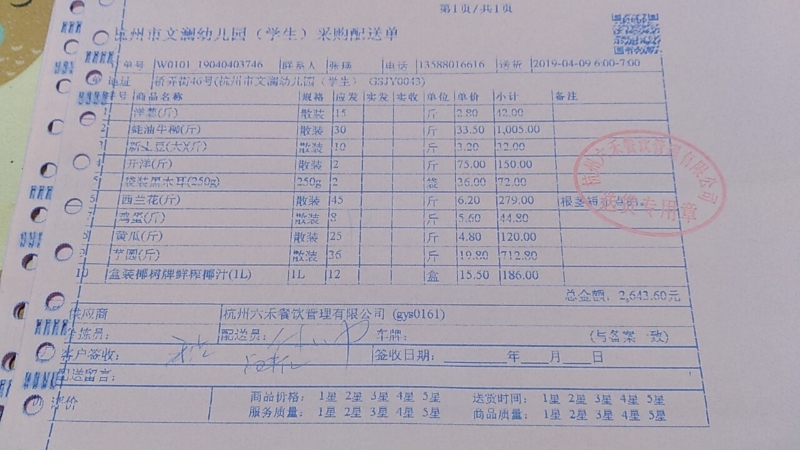 第1页/共1页
杭州市文澜幼儿园（学生）采购配送单
单号 W0101 19040403746 联系人 电话 13588016616 送货 2019-04-09 6:00-7:00
地址 侨弄街46号(杭州市文澜幼儿园（学生） GSJY0043)
序号 商品名称 规格 应发 实发 实收 单位 单价 小计 备注
1 洋葱(斤) 散装 15 斤 2.80 42.00
2 蚝油牛柳(斤) 散装 30 斤 33.50 1,005.00
3 (斤) 散装 10 斤 3.20 32.00
4 开洋(斤) 散装 2 斤 75.00 150.00
5 袋装黑木耳(250g) 250g 2 袋 36.00 72.00
6 西兰花(斤) 散装 45 斤 6.20 279.00
鸡蛋(斤) 散装 8 斤 5.60 44.80
8 黄瓜(斤) 散装 25 斤 4.80 120.00
9 芋圆(斤) 散装 36 斤 19.80 712.80
10 盒装椰树牌鲜榨椰汁(1L) 1L 12 盒 15.50 186.00
总金额：2,643.60元
供应商 杭州六禾餐饮管理有限公司 (gys0161)
分拣员： 配送员： 车牌： (与备案一致)
客户签收： 签收日期： 年 月 日
配送留言：
评价 商品价格： 1星 2星 3星 4星 5星 送货时间： 1星 2星 3星 4星 5星
服务质量： 1星 2星 3星 4星 5星 商品质量： 1星 2星 3星 4星 5星
杭州六禾餐饮管理有限公司
送货专用章